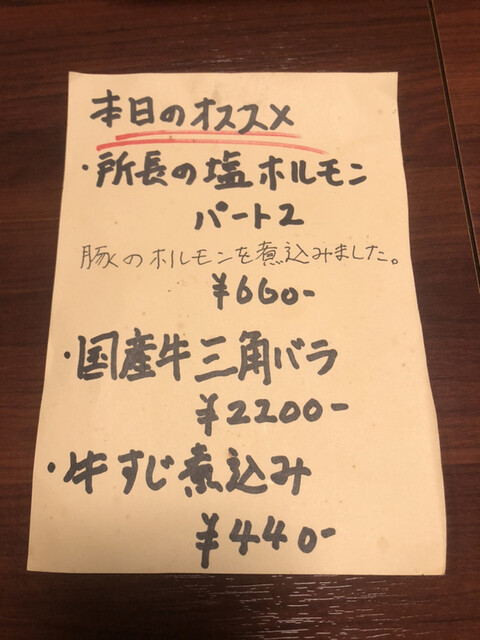 本日のオススメ
・所長の塩ホルモン
パート2
豚のホルモンを煮込みました。
¥660-
・国産牛三角バラ
¥2200-
・牛すじ煮込み
¥440-